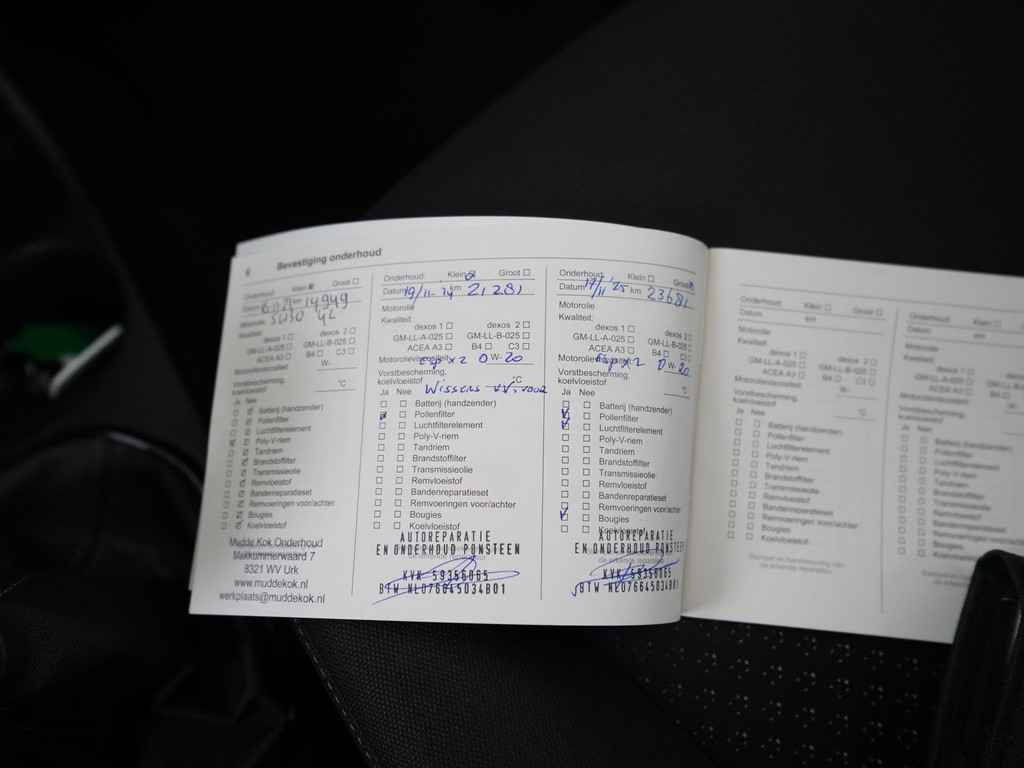 6 Bevestiging onderhoud
Onderhoud: Klein Groot
km 14949
5W30 4L
Kwaliteit
dexos 1 dexos 2
GM-LL-A-025 GM-LL-B-025
ACEA A3 B4 C3
W-
Vorstbescherming
koelvloeistof °C
Ja Nee
Batterij (handzender)
Pollenfilter
Luchtfilterelement
Poly-V-riem
Tandriem
Brandstoffilter
Transmissieolie
Remvloeistof
Bandenreparatieset
Remvoeringen voor/achter
Bougies
Koelvloeistof
Mudde Kok Onderhoud
8321 WV Urk
www.muddekok.nl
werkplaats@muddekok.nl
Onderhoud: Klein Groot
Datum 19/11-24 km 21281
Motorolie
Kwaliteit:
dexos 1 dexos 2
GM-LL-A-025 GM-LL-B-025
ACEA A3 B4 C3
0 W- 20
Vorstbescherming
koelvloeistof °C
Wissers v.v. voor
Ja Nee
Batterij (handzender)
Pollenfilter
Luchtfilterelement
Poly-V-riem
Tandriem
Brandstoffilter
Transmissieolie
Remvloeistof
Bandenreparatieset
Remvoeringen voor/achter
Bougies
Koelvloeistof
AUTOREPARATIE
EN ONDERHOUD PONSTEEN
KVK 59356065
BTW NL076645034B01
Onderhoud: Klein Groot
Datum 17/11 '25 km 23681
Motorolie
Kwaliteit:
dexos 1 dexos 2
GM-LL-A-025 GM-LL-B-025
ACEA A3 B4 C3
0 W- 20
Vorstbescherming
koelvloeistof °C
Ja Nee
Batterij (handzender)
Pollenfilter
Luchtfilterelement
Poly-V-riem
Tandriem
Brandstoffilter
Transmissieolie
Remvloeistof
Bandenreparatieset
Remvoeringen voor/achter
Bougies
Koelvloeistof
AUTOREPARATIE
EN ONDERHOUD PONSTEEN
KVK 59356065
BTW NL076645034B01
Onderhoud: Klein Groot
Datum km
Motorolie
Kwaliteit:
dexos 1 dexos 2
GM-LL-A-025 GM-LL-B-025
ACEA A3 B4 C3
W-
Vorstbescherming
koelvloeistof °C
Ja Nee
Batterij (handzender)
Pollenfilter
Luchtfilterelement
Poly-V-riem
Tandriem
Brandstoffilter
Transmissieolie
Remvloeistof
Bandenreparatieset
Remvoeringen voor/achter
Bougies
Koelvloeistof
Onderhoud: Klein
Datum km
Motorolie
Kwaliteit:
dexos 1
GM-LL-A-025
ACEA A3
Vorstbescherming
koelvloeistof
Ja Nee
Pollenfilter
Luchtfilterelement
Poly-V-riem
Tandriem
Brandstoffilter
Transmissieolie
Remvloeistof
Bougies